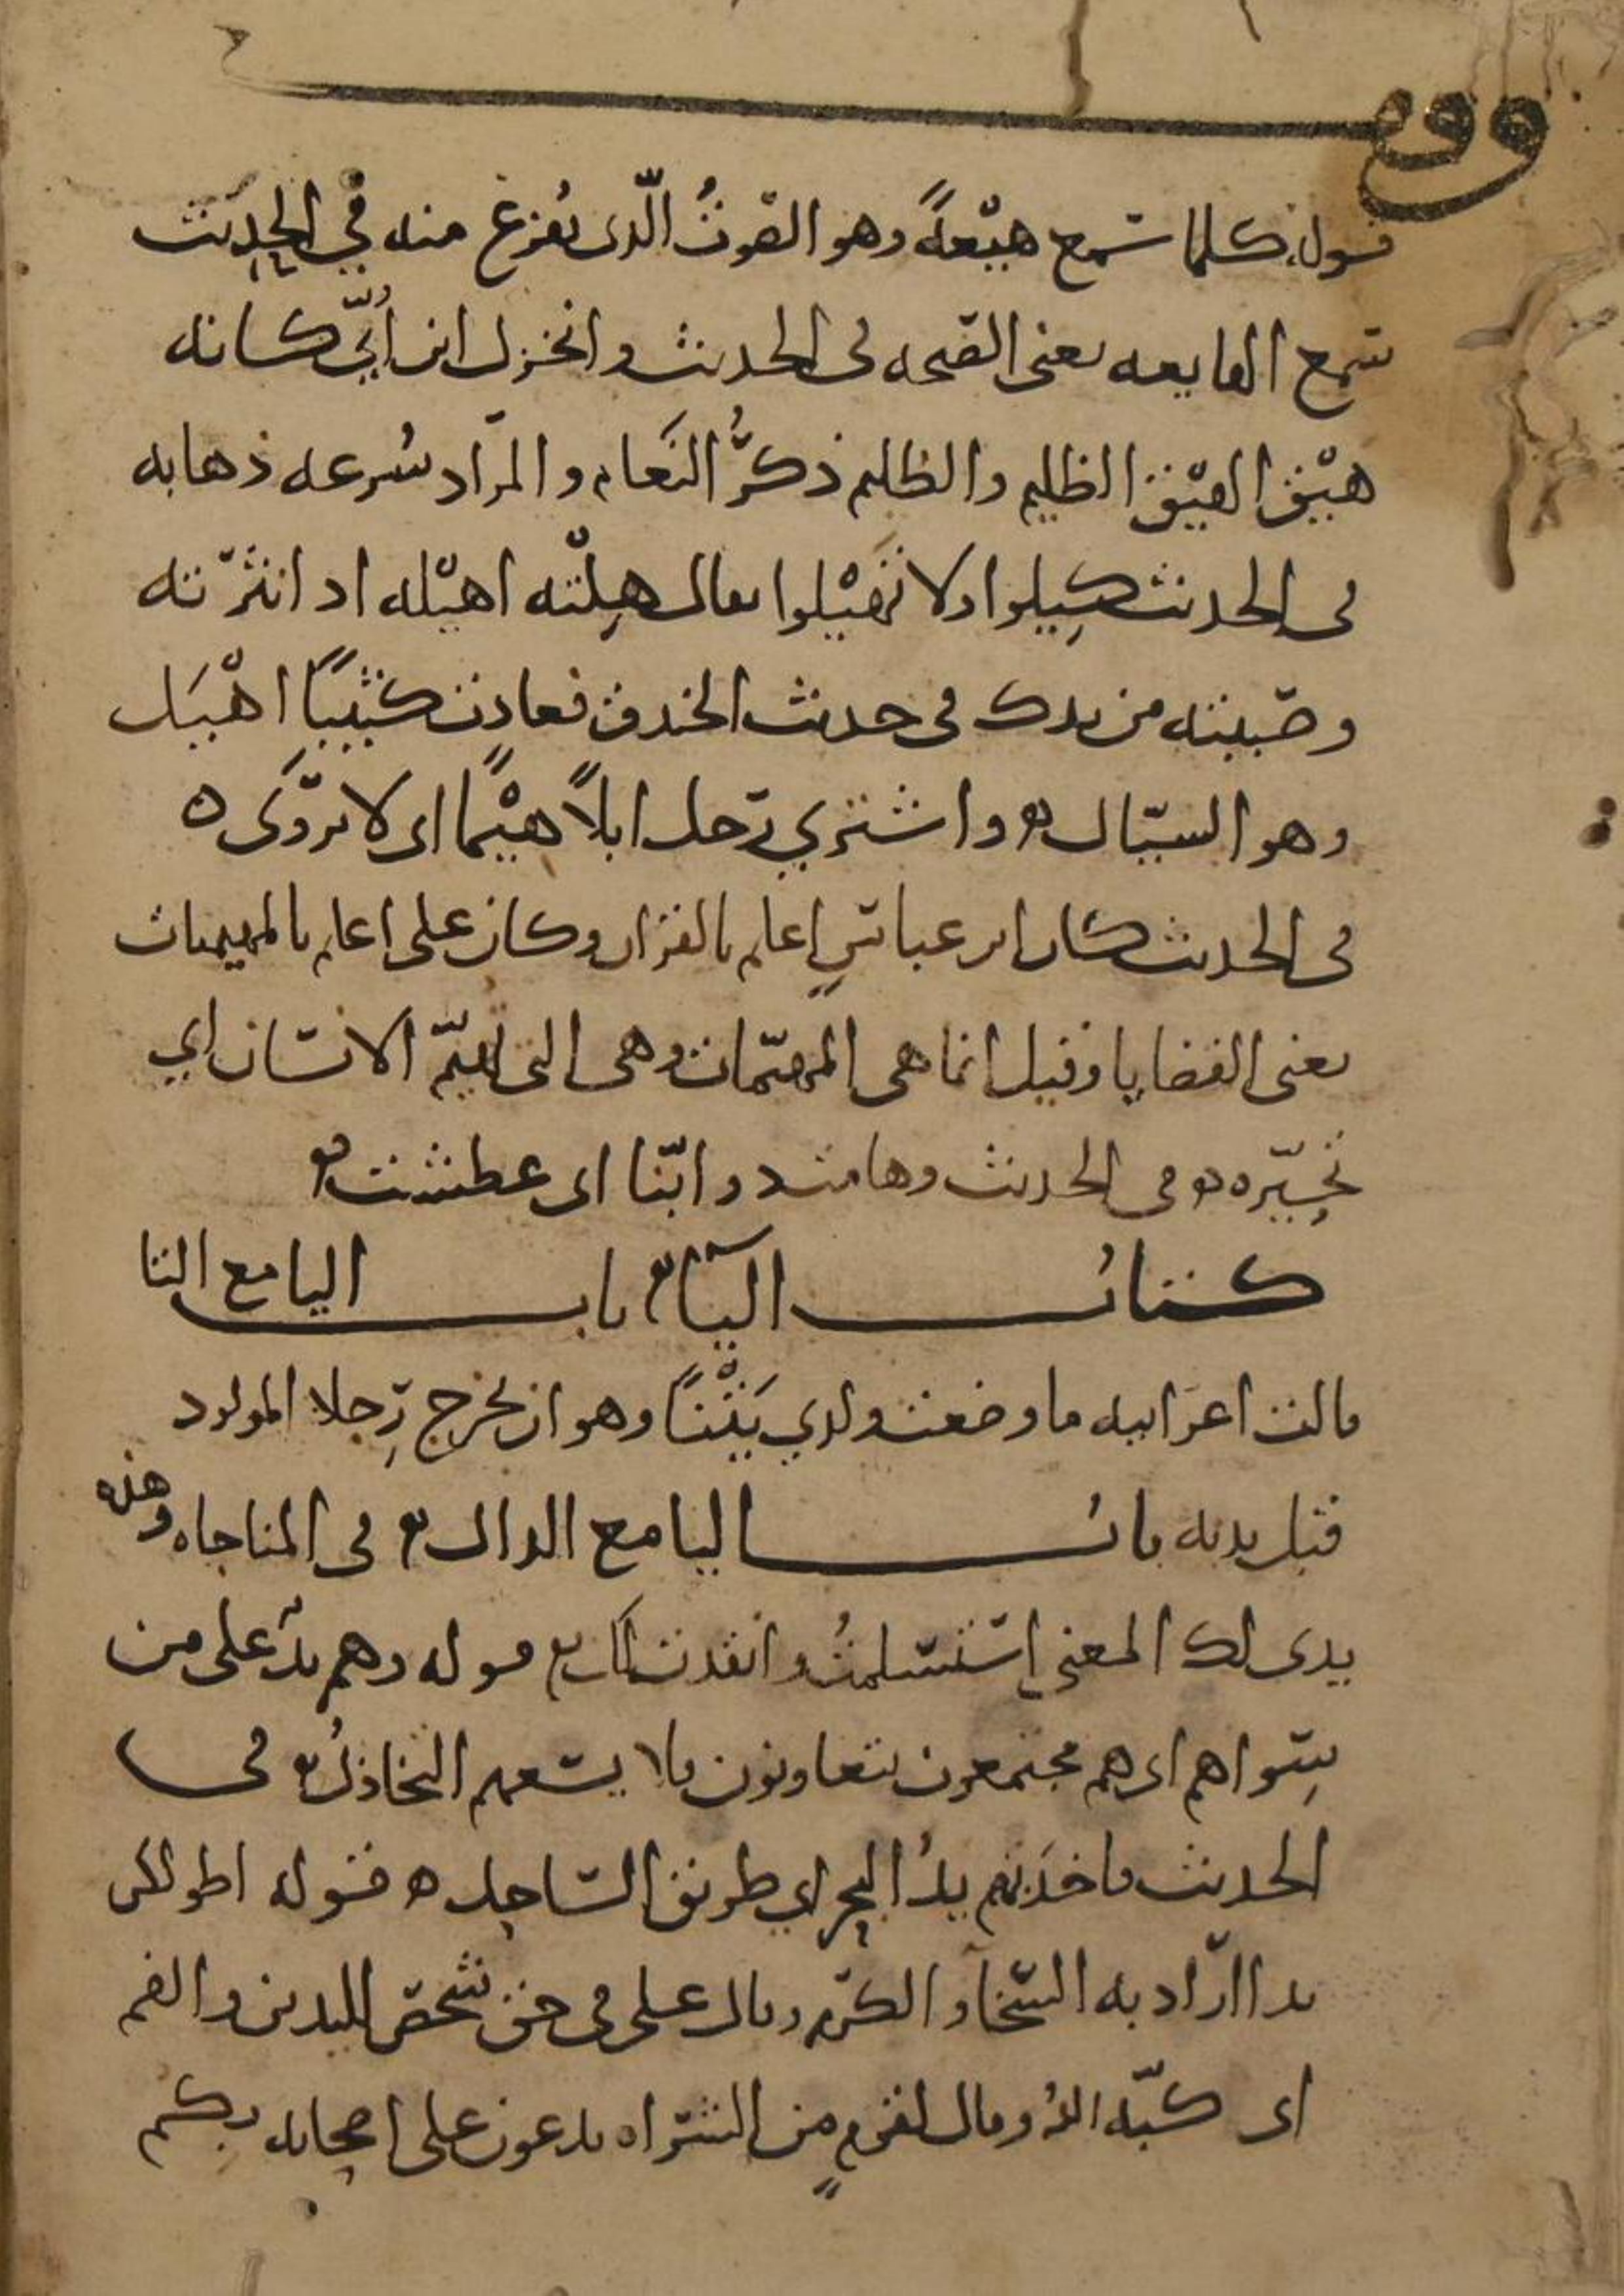 وقف
قوله كلما سمع هيْعةً وهو الصوتُ الّذى يُفزع منه في الحديث
سمع الهايعه يعنى الصيحه فى الحديث وانخزل ابن اُبَيّ كانه
هيْق الهيْق الظليم والظليم ذكرُ النَعام والمراد سُرعه ذهابه
فى الحديث كِيلوا ولا تَهيْلوا يقال هِلْته اهيْله اذا نثرته
وصببته من يدك فى حديث الخندق فعادت كثيبًا اهْيَل
وهو السيّال واشتري رجل ابلاً هيْمًا اى لا تروَى
فى الحديث كان ابن عباسٍ اعلم بالقران وكان على اعلم بالمهيمنات
يعنى القضايا وقيل انما هى المهيّمات وهى التى تهيّم الانسان اي
تحيّره فى الحديث وهامت دوابّنا اى عطشت
كتاب اليآء باب اليا مع التا
قالت اعرابيه ما وضعت ولدي يَتْنًا وهو ان يخرج رِجلا المولود
قبل يديه باب اليا مع الدال فى المناجاه وهذه
يدى لك المعنى استسلمتُ وانقدت لك قوله وهم يدٌ على من
سِواهم اى هم مجتمعون يتعاونون فلا يسعهم التخاذلُ فى
الحديث فاخذَ بهم يدُ البحر اي طريق الساحل قوله اطولكن
يدا اراد به السخا والكرم وقال على فى حق شخص لليدين والفم
اى كبّه اللهُ وقال لقومٍ من الشراه يدعون على اصحابه بكم